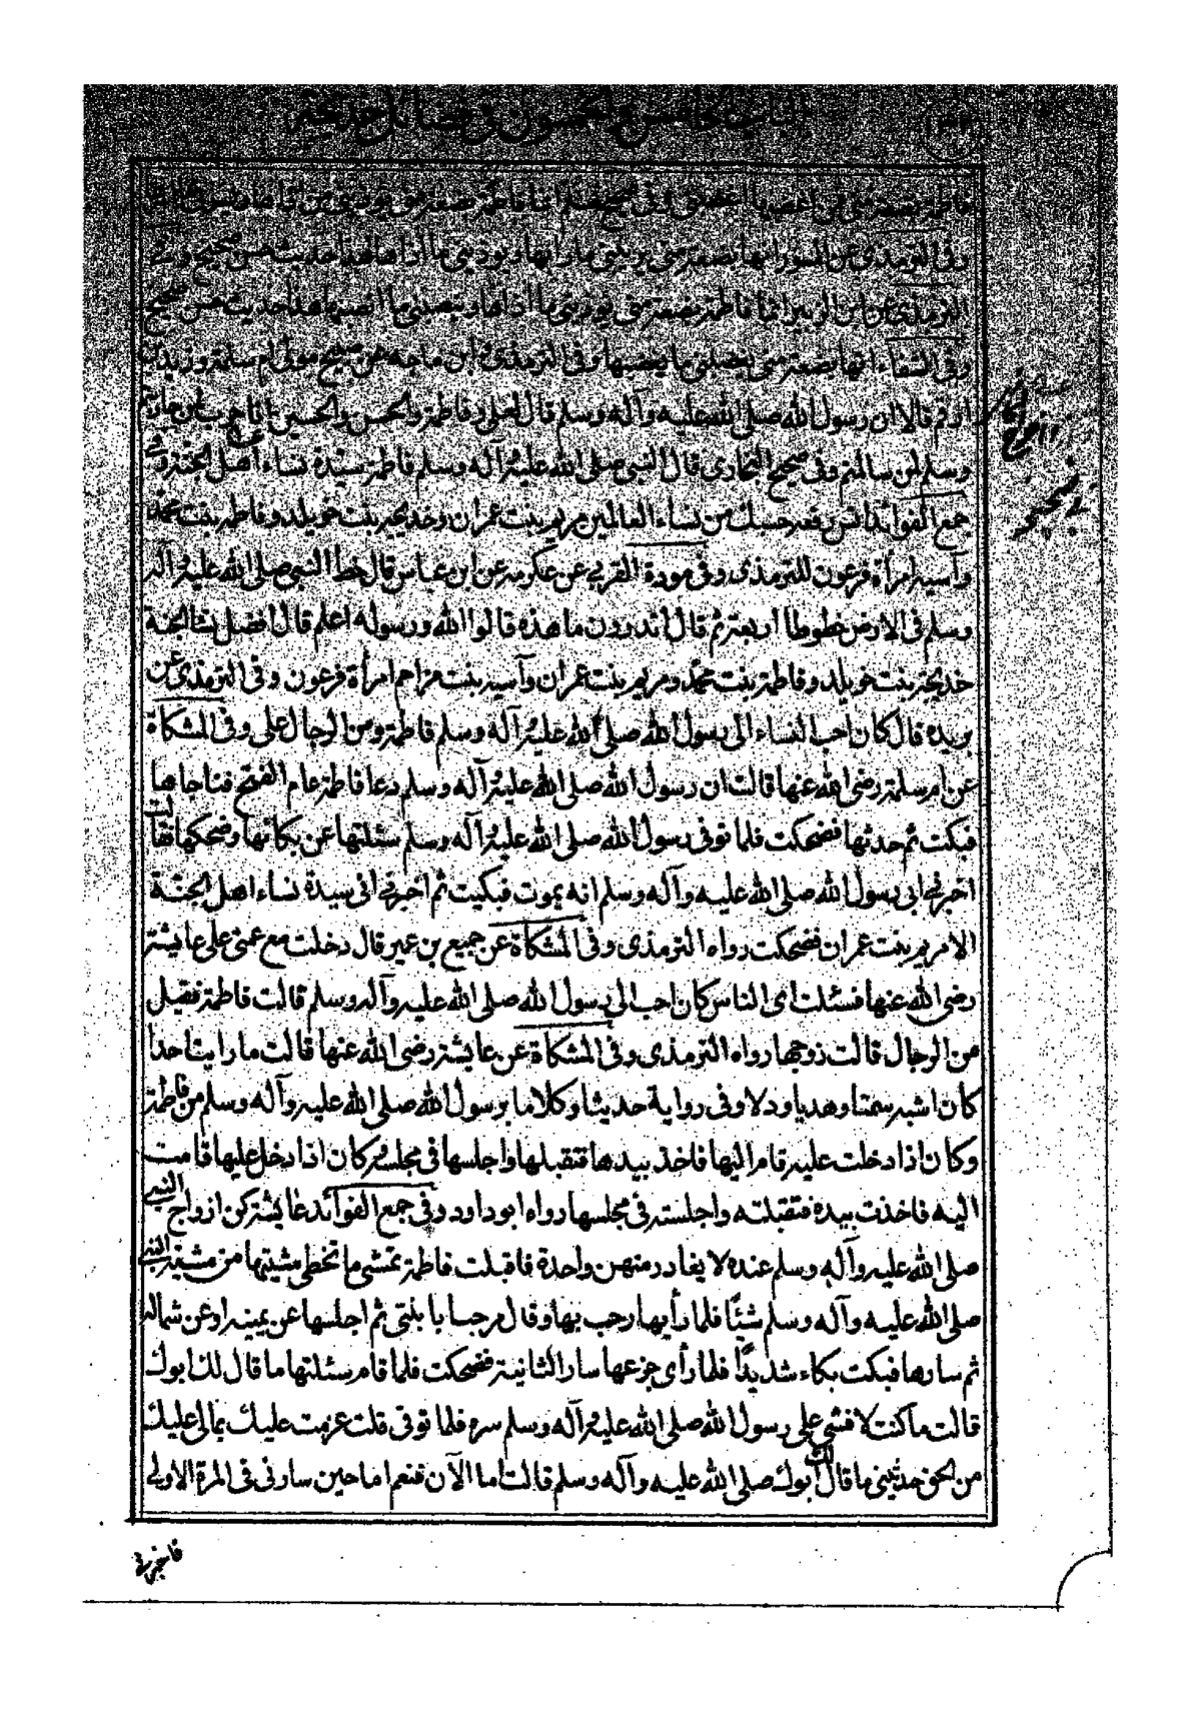 الباب الخامس والخمسون في فضائل خديجة
فاطمة بضعة مني فمن اغضبها اغضبني وفي صحيح مسلم انما فاطمة بضعة مني يؤذيني
وفي الترمذي عن المسور انها بضعة مني يريبني ما رابها ويؤذيني ما اذاها هذا حديث حسن صحيح وفي
الترمذي عن ابن الزبير انما فاطمة بضعة مني يؤذيني ما اذاها وينصبني ما انصبها هذا حديث حسن صحيح
وفي الشفاء انها بضعة مني يغضبني ما يغضبها وفي الترمذي وابن ماجه عن صبيح مولى ام سلمة وزيد بن
ارقم قالا ان رسول الله صلى الله عليه وآله وسلم قال لعلي وفاطمة والحسن والحسين انا حرب لمن حاربتم
وسلم لمن سالمتم وفي صحيح البخاري قال النبي صلى الله عليه وآله وسلم فاطمة سيدة نساء اهل الجنة وفي
جمع الفوائد انس رفعه حسبك من نساء العالمين مريم بنت عمران وخديجة بنت خويلد وفاطمة بنت محمد
وآسية امرأة فرعون للترمذي وفي مودة القربى عن عكرمه عن ابن عباس قال خط النبي صلى الله عليه وآله
وسلم في الارض خطوطا اربعة ثم قال أتدرون ما هذه قالوا الله ورسوله اعلم قال افضل نساء الجنة
خديجة بنت خويلد وفاطمة بنت محمد ومريم بنت عمران وآسيه بنت مزاحم امرأة فرعون وفي الترمذي عن
بريده قال كان احب النساء الى رسول الله صلى الله عليه وآله وسلم فاطمة ومن الرجال علي وفي المشكاة
عن ام سلمة رضي الله عنها قالت ان رسول الله صلى الله عليه وآله وسلم دعا فاطمة عام الفتح فناجاها
فبكت ثم حدثها فضحكت فلما توفي رسول الله صلى الله عليه وآله وسلم سئلتها عن بكائها وضحكها فقالت
اخبرني ابي رسول الله صلى الله عليه وآله وسلم انه يموت فبكيت ثم اخبرني اني سيدة نساء اهل الجنة
الا مريم بنت عمران فضحكت رواه الترمذي وفي المشكاة عن جميع بن عمير قال دخلت مع عمتي على عايشة
رضي الله عنها فسئلت اي الناس كان احب الى رسول الله صلى الله عليه وآله وسلم قالت فاطمة فقيل
من الرجال قالت زوجها رواه الترمذي وفي المشكاة عن عايشة رضي الله عنها قالت ما رايت احدا
كان اشبه سمتا وهديا ودلا وفي رواية حديثا وكلاما برسول الله صلى الله عليه وآله وسلم من فاطمة
وكان اذا دخلت عليه قام اليها فاخذ بيدها فتقبلها واجلسها في مجلسه وكان اذا دخل عليها قامت
اليه فاخذت بيده فتقبلته واجلسته في مجلسها رواه ابو داود وفي جمع الفوائد عايشة كن ازواج النبي
صلى الله عليه وآله وسلم عنده لا يغادر منهن واحدة فاقبلت فاطمة تمشي ما تخطي مشيتها من مشية النبي
صلى الله عليه وآله وسلم شئا فلما رأيها رحب بها وقال مرحبا يا بنتي ثم اجلسها عن يمينه او عن شماله
ثم سارها فبكت بكاء شديدا فلما رأى جزعها سار الثانية فضحكت فلما قام سئلتها ما قال لك ابوك
قالت ما كنت لافشي على رسول الله صلى الله عليه وآله وسلم سره فلما توفي قلت عزمت عليك بمالي عليك
من الحق حدثيني ما قال لك ابوك صلى الله عليه وآله وسلم قالت اما الآن فنعم اما حين سارني في المرة الاولى
فاخبرني